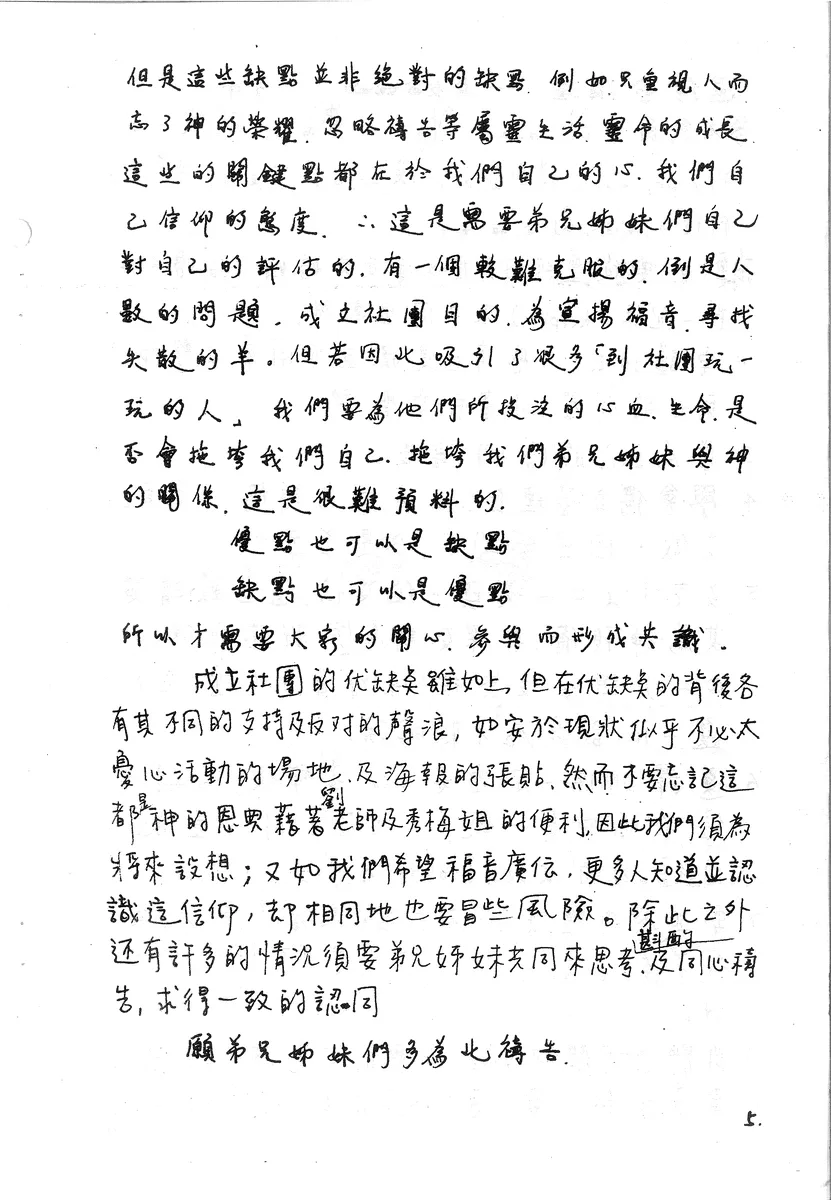 但是這些缺點並非絕對的缺點 例如只重視人而
忘了神的榮耀. 忽略禱告等屬靈生活 靈命的成長
這些的關鍵點都在於我們自己的心. 我們自
己信仰的態度. ∴這是需要弟兄姊妹們自己
對自己的評估的. 有一個較難克服的. 倒是人
數的問題. 成立社團目的. 為宣揚福音. 尋找
失散的羊。但若因此吸引了很多「到社團玩一
玩的人」 我們要為他們所投注的心血. 生命. 是
否會拖垮我們自己. 拖垮我們弟兄姊妹與神
的關係. 這是很難預料的.
優點也可以是缺點
缺點也可以是優點
所以才需要大家的關心. 參與而形成共識.
成立社團的优缺奌雖如上, 但在优缺奌的背後各
有其不同的支持及反对的聲浪, 如安於現狀似乎不必太
憂心活動的場地、及海報的張貼. 然而不要忘記這
都是神的恩典藉著劉老師及秀梅姐的便利, 因此我們須為
將來設想; 又如我們希望福音廣传, 更多人知道並認
識這信仰, 却相同地也要冒些風險。除此之外
还有許多的情況須要弟兄姊妹共同來思考、斟酌及同心禱
告, 求得一致的認同
願弟兄姊妹們多為此禱告.
5.